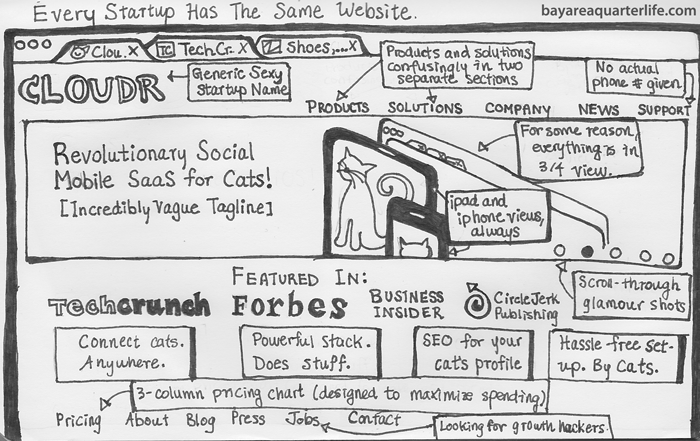 Every Startup Has The Same Website.
bayareaquarterlife.com
Clou. X
TC TechCr. X
Shoes,... X
Products and solutions
confusingly in two
separate sections
No actual
phone # given
CLOUDR
Generic Sexy
Startup Name
PRODUCTS SOLUTIONS COMPANY NEWS SUPPORT
Revolutionary Social
Mobile SaaS for Cats!
[Incredibly Vague Tagline]
For some reason,
everything is in
3/4 view.
ipad and
iphone views,
always
Scroll-through
glamour shots
FEATURED IN:
Techcrunch Forbes BUSINESS
INSIDER
CircleJerk
Publishing
Connect cats.
Anywhere.
Powerful stack.
Does stuff.
SEO for your
cat's profile
Hassle free set-
up. By Cats.
3-column pricing chart (designed to maximize spending)
Pricing About Blog Press Jobs Contact
Looking for growth hackers.